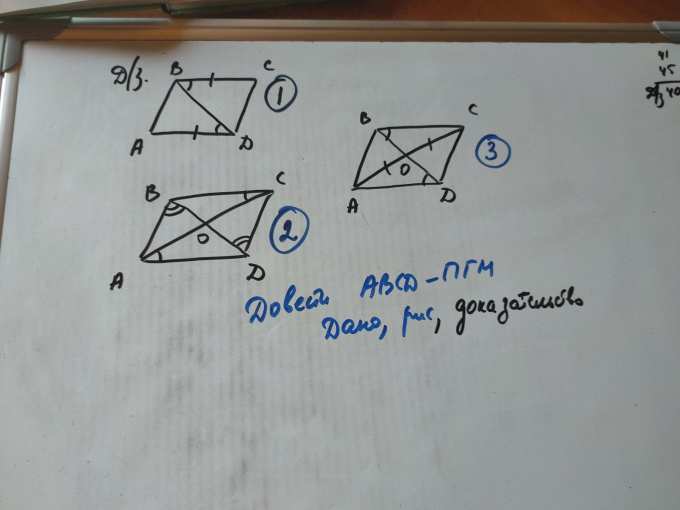 Д/з.
B C
A D
1
B C
A D
O
3
B C
A D
O
2
Довести ABCD-ПГМ
Дано, рис, доказательство
41
45